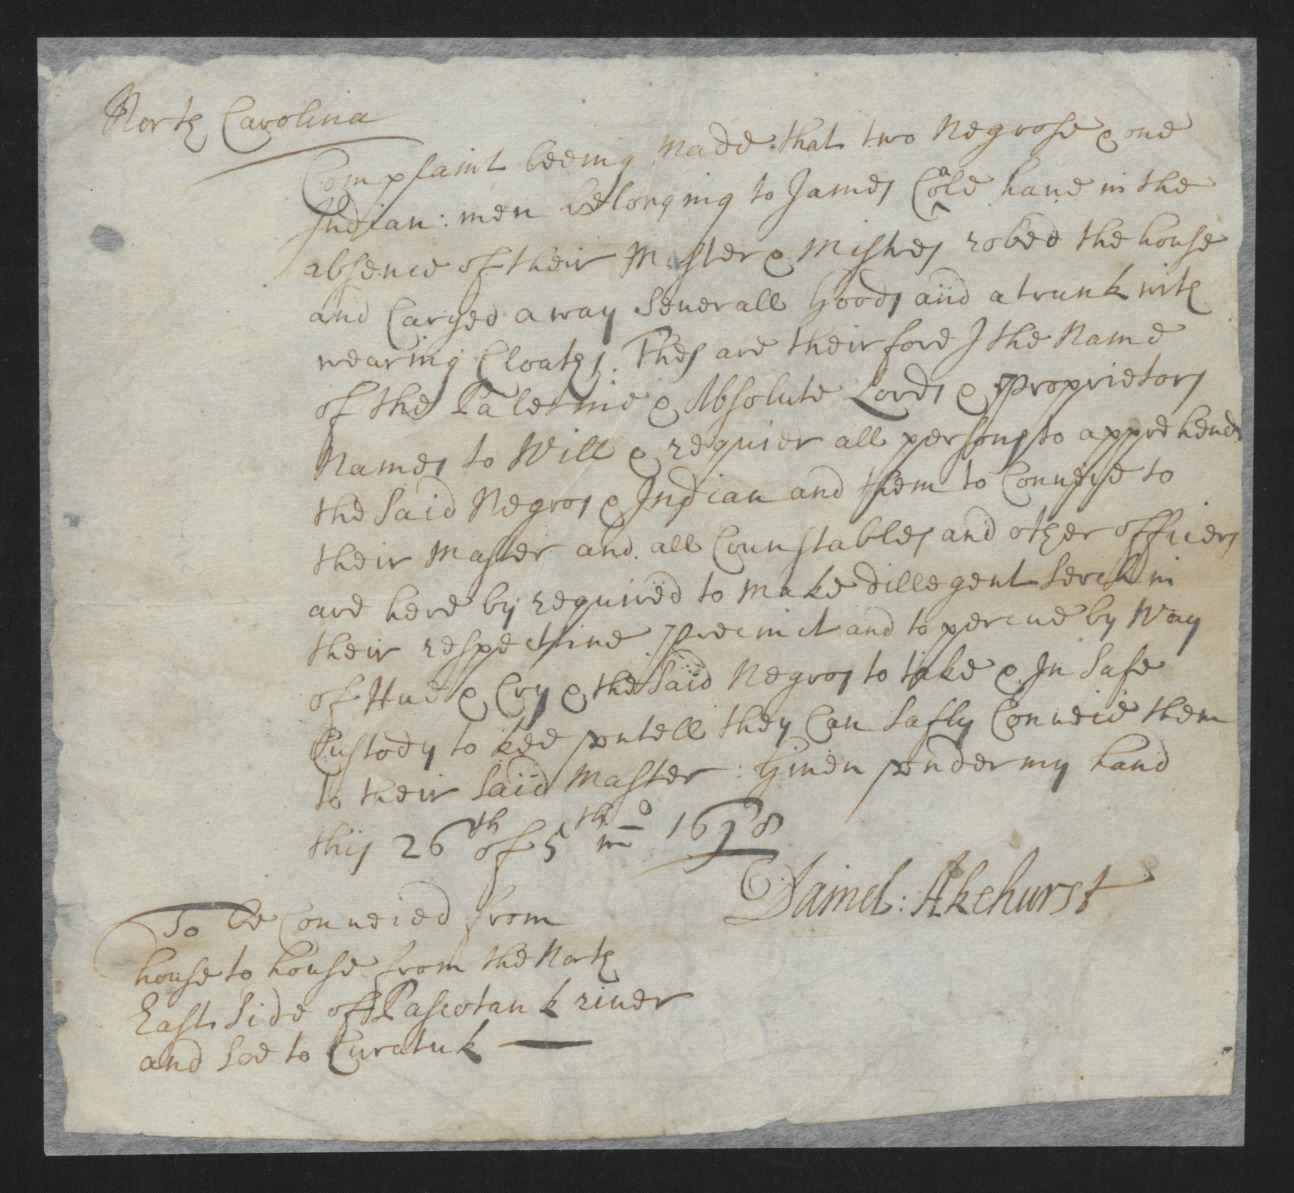 North Carolina
Complaint beeing made that two Negrose & one
Indian: men belonging to James Coale have in the
absence of their Master & Mistres robed the house
and Caryed away Severall Goods and a trunk with
wearing Cloaths: Thes are their fore I the Name
of the Paletine & Absolute Lords & Proprietors
Names to Will & requier all persons to apprehend
the Said Negros & Indian and them to Conveye to
their Master and all Counstables and other officiers
are here by required to make dillegent Serch in
their respective Precinct and to percue by Way
of Hue & Cry & the Said Negros to take & In Safe
Custody to kee untell they Can Safly Conveie them
to their Said Master: Given under my hand
this 26th of 5th mo 1698
Daniel: Akehurst
To be Conveied from
house to house from the North
East Side of Pascotank river
and Soe to Curatuk